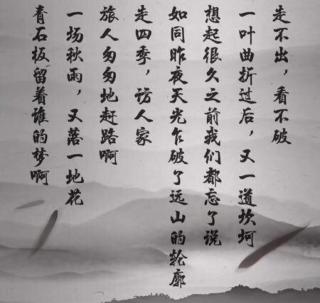 走不出，看不破
一叶曲折过后，又一道坎坷
想起很久之前我们都忘了说
如同昨夜天光乍破了远山的轮廓
走四季，访人家
旅人匆匆地赶路啊
一场秋雨，又落一地花
青石板留着谁的梦啊